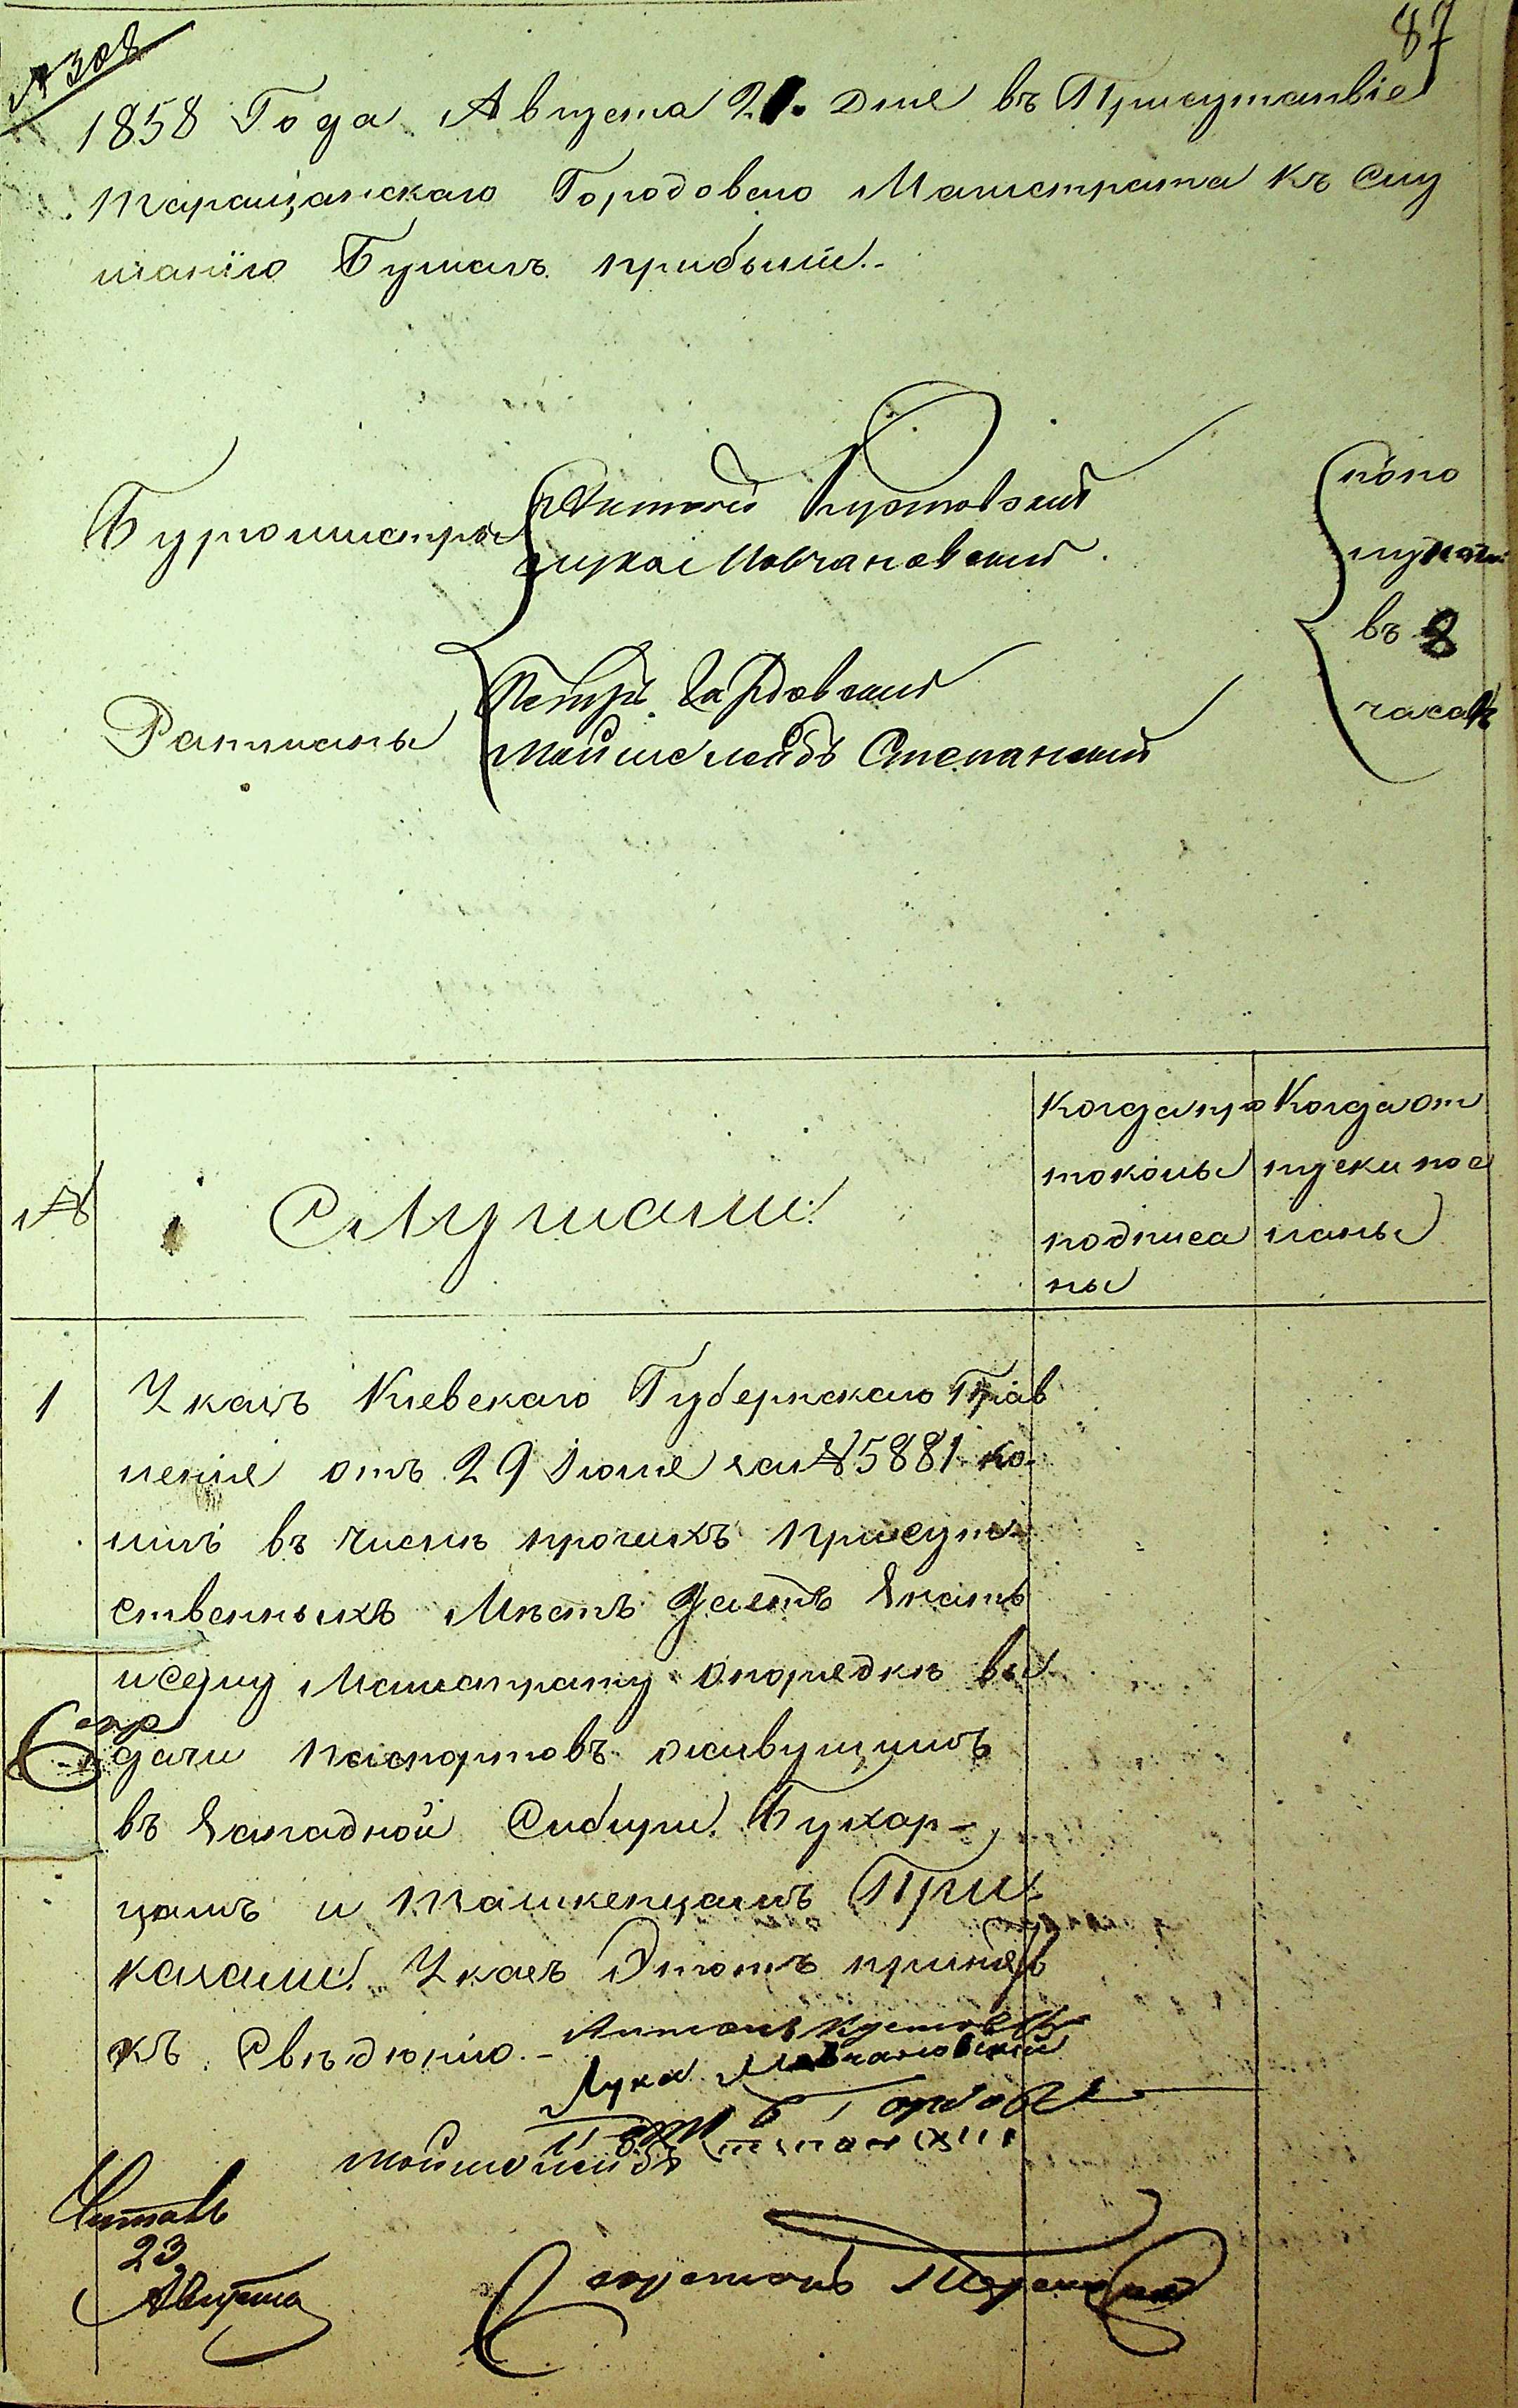 № 308
87
1858 Года Августа 21. Дня въ Присутствіе
Таращанскаго Городоваго Магистрата къ слу
шанію Бумагъ прибыли.-
Бургомистры
Антоній Кустовскій
Лукаі Мовчановскій
Ратманы
Петръ Гардовскій
Мойше лейбъ Степанскій
попо
лудни
въ 8
часовъ
№
Слушали:
Когда про
токолы
подписа
ны
Когда от
пуски пос
ланы
1
Указъ Кіевскаго Губернскаго Прав
ленія отъ 29 Іюля за № 5881 ко-
имъ въ числѣ прочихъ присут-
ственныхъ Мѣстъ даетъ знать
и сему Магистрату о порядкѣ вы-
дачи паспортовъ живущимъ
въ Западной Сибири Бухар-
цамъ и Ташкенцамъ При-
казали: Указъ Этотъ принять
къ Свѣдѣнію.-
Антоній Кустовскій
Лука Мовчановскій
Петръ Гордовскій
Мойше лейбъ Степанскій
Читалъ
23
Августа
Секретарь